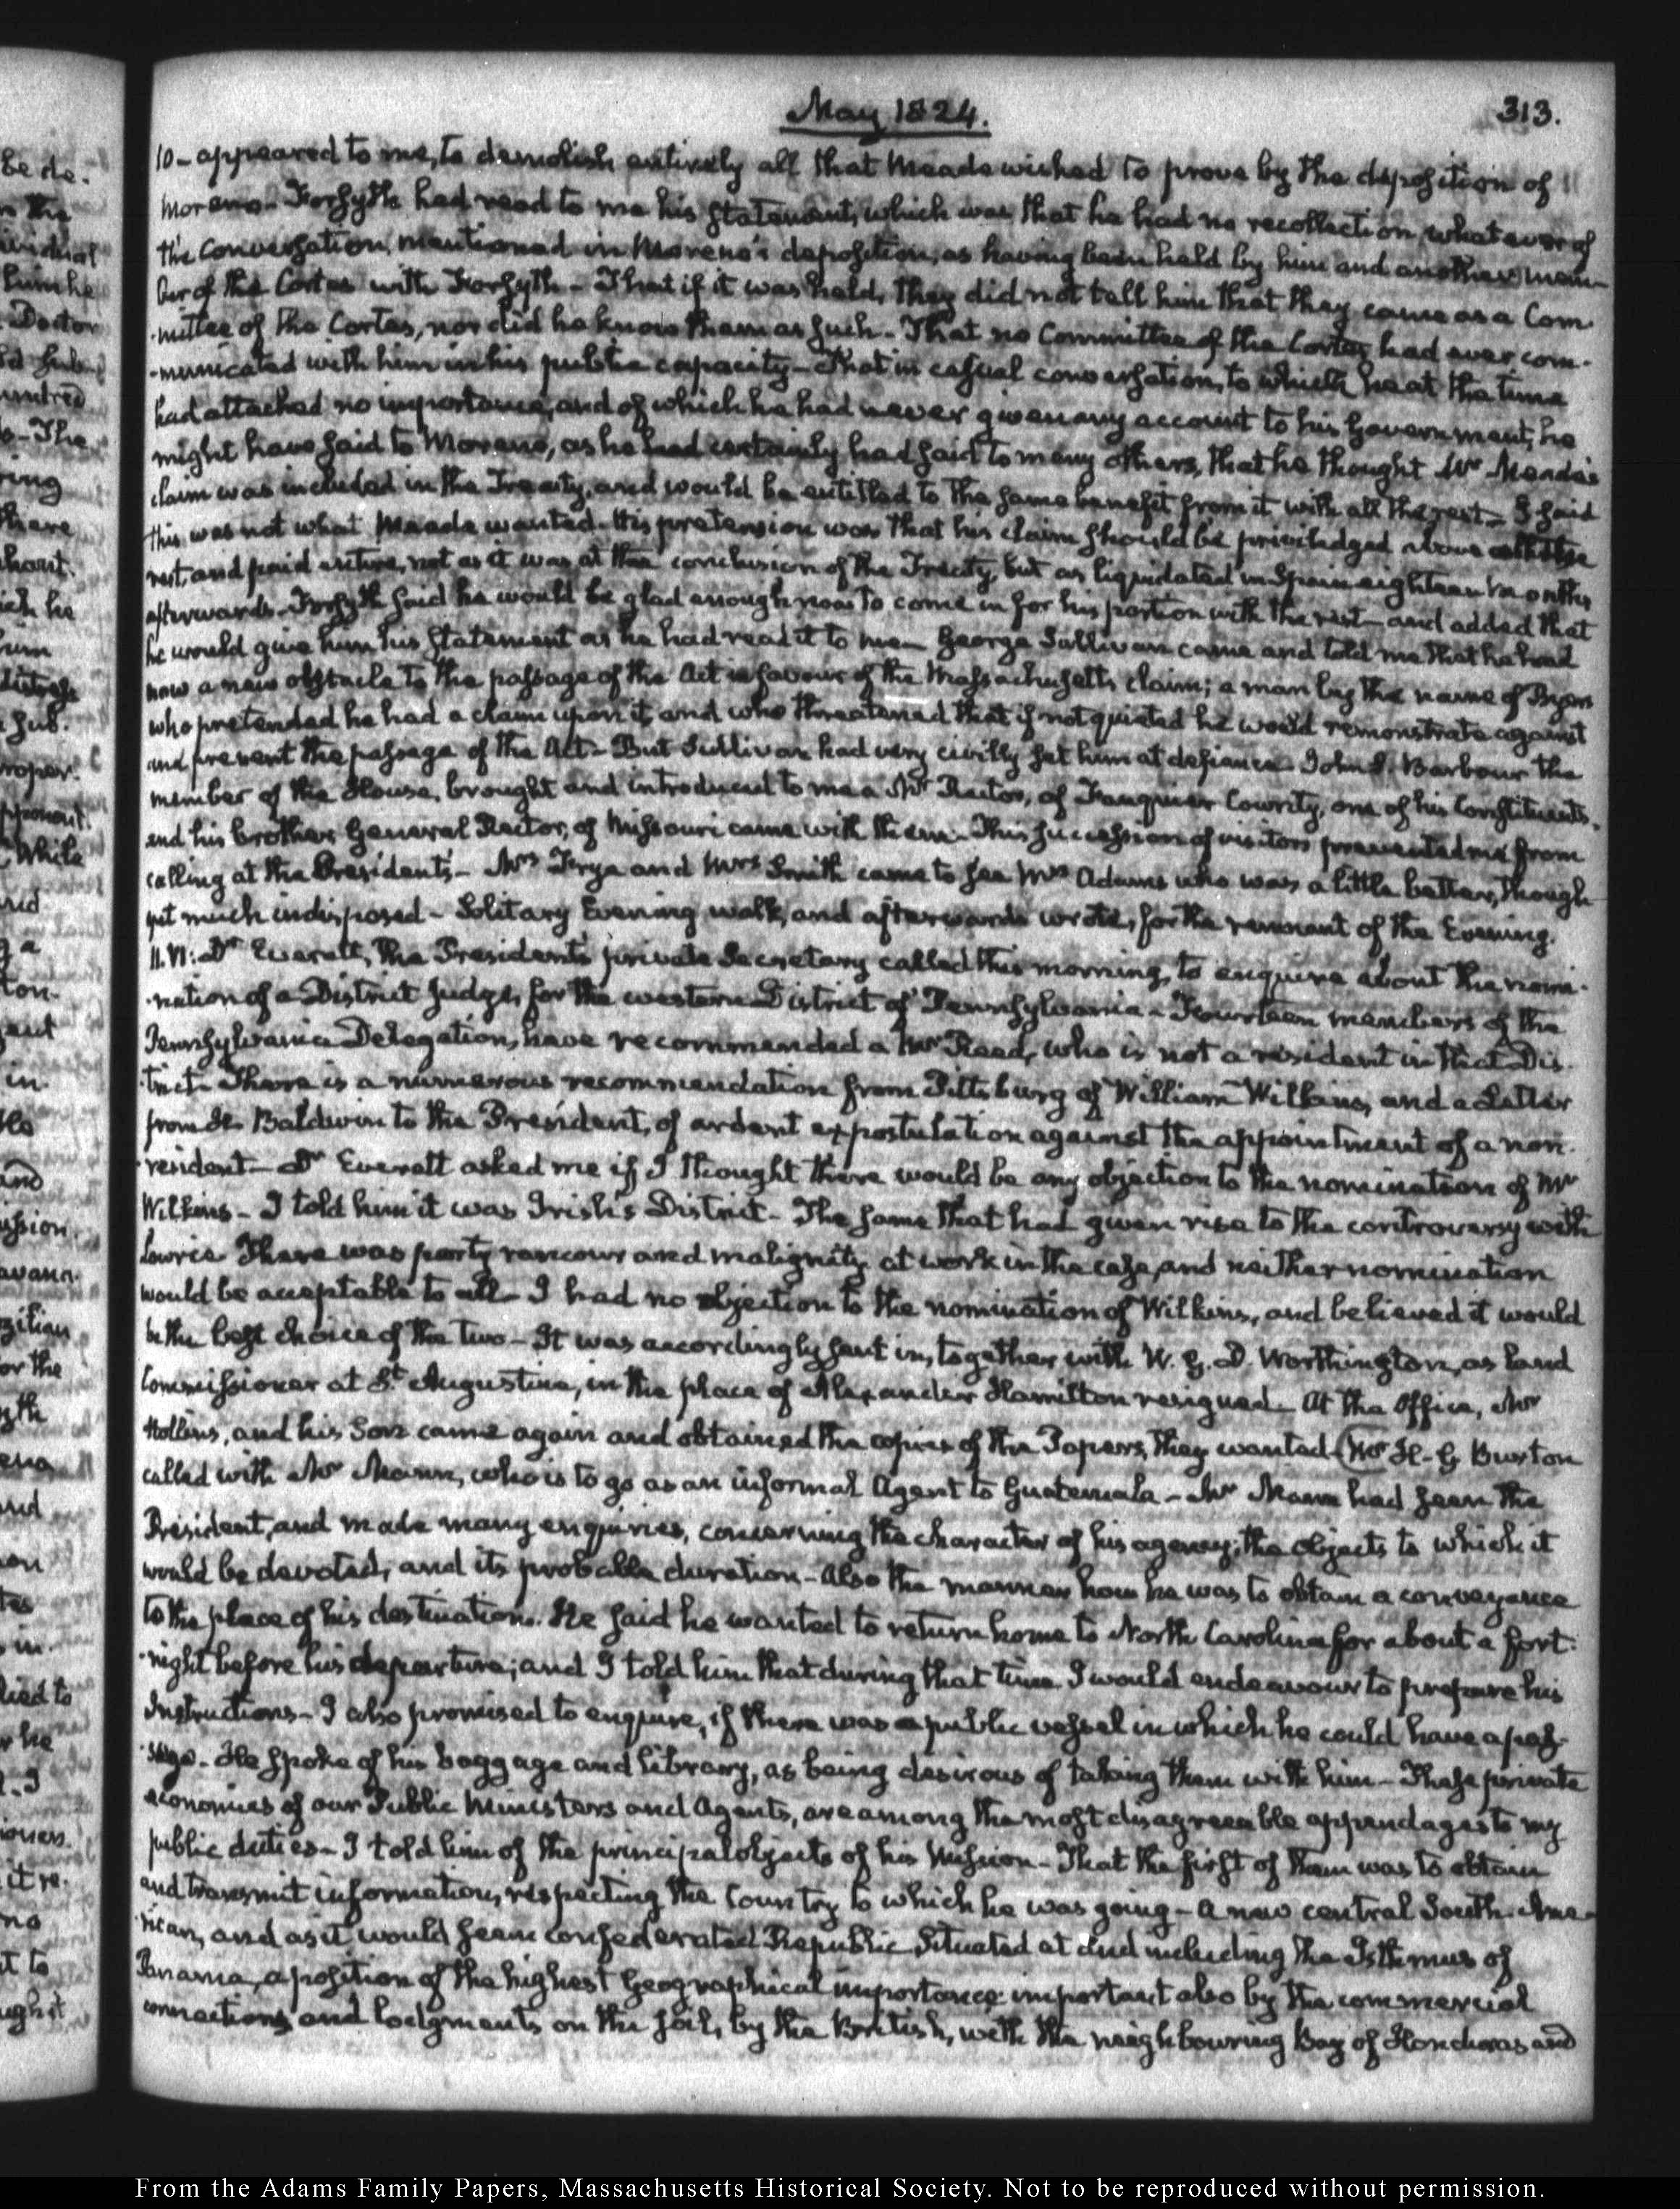 May 1824.
313.
10- appeared to me, to demolish entirely all that Meade wished to prove by the deposition of
Moreno- Forsyth had read to me his statement, which was, that he had no recollection whatever of
the conversation mentioned in Moreno's deposition, as having been held by him and another mem-
ber of the Cortes with Forsyth- That if it was held, they did not tell him that they came as a Com-
-mittee of the Cortes, nor did he know them as such- That no Committee of the Cortes had ever com-
-municated with him in his public capacity- That in casual conversation, to which he at the time
had attached no importance, and of which he had never given any account to his Government, he
might have said to Moreno, as he had certainly had said to many others, that he thought Mr Meade's
claim was included in the Treaty, and would be entitled to the same benefit from it with all the rest- I said
this was not what Meade wanted. His pretension was that his claim should be priviledged above all the
rest, and paid entire, not as it was at the conclusion of the Treaty, but as liquidated in Spain eighteen months
afterwards- Forsyth said he would be glad enough now to come in for his portion with the rest- and added that
he would give him his statement as he had read it to me- George Sullivan came and told me that he had
now a new obstacle to the passage of the Act in favour of the Massachusetts claim; a man by the name of Byers
who pretended he had a claim upon it, and who threatened that if not quieted he would remonstrate against
and prevent the passage of the Act- But Sullivan had very civilly set him at defiance. John S. Barbour the
member of the House, brought and introduced to me a Mr Rector, of Fauquier County, one of his Constituents.
and his brother General Rector, of Missouri came with them- This succession of visitors prevented me from
calling at the President's- Mrs Frye and Mrs Smith came to see Mrs Adams who was a little better, though
yet much indisposed- Solitary Evening walk, and afterwards wrote, for the remnant of the Evening.
11. VI: Dr Everett, the President's private Secretary called this morning, to enquire about the nomi-
-nation of a District Judge, for the western District of Pennsylvania- Fourteen members of the
Pennsylvania Delegation, have recommended a Mr Reed, who is not a resident in that Dis-
-trict- There is a numerous recommendation from Pittsburg of William Wilkins, and a Letter
from H. Baldwin to the President, of ardent expostulation against the appointment of a non-
-resident- Dr Everett asked me if I thought there would be any objection to the nomination of Mr
Wilkins- I told him it was Irish's District- The same that had given rise to the controversy with
Lowrie. There was party rancour and malignity at work in the case, and neither nomination
would be acceptable to all- I had no objection to the nomination of Wilkins, and believed it would
be the best choice of the two- It was accordingly sent in, together with W. G. D. Worthington, as Land
Commissioner at St Augustine, in the place of Alexander Hamilton resigned- At the Office, Mr
Hollins, and his Son came again and obtained the copies of the Papers, they wanted (Mr H. G. Burton
called with Mr Mann, who is to go as an informal Agent to Guatemala- Mr Mann had seen the
President, and made many enquiries, concerning the character of his agency; the objects to which it
would be devoted, and its probable duration- Also the manner how he was to obtain a conveyance
to the place of his destination. He said he wanted to return home to North Carolina for about a fort-
-night before his departure; and I told him that during that time I would endeavour to prepare his
Instructions- I also promised to enquire, if there was a public vessel in which he could have a pas-
-sage- He spoke of his baggage and library, as being desirous of taking them with him- These private
economies of our Public Ministers and Agents, are among the most disagreeable appendages to my
public duties- I told him of the principal objects of his Mission- That the first of them was to obtain
and transmit information, respecting the Country to which he was going- a new central South Ame-
-rican, and as it would seem confederated Republic Situated at and including the Isthmus of
Panama, a position of the highest Geographical importance: important also by the commercial
connections and lodgments on the soil, by the British, with the neighbouring Bay of Honduras and
be de-
in the
ividual
him he
Doctor
hundred
-The
ring
there
him
distress
sub-
proper
opponent
While
a
in
He
and
ission
or the
and
on
in-
he
I
it re-
no
to
From the Adams Family Papers, Massachusetts Historical Society. Not to be reproduced without permission.